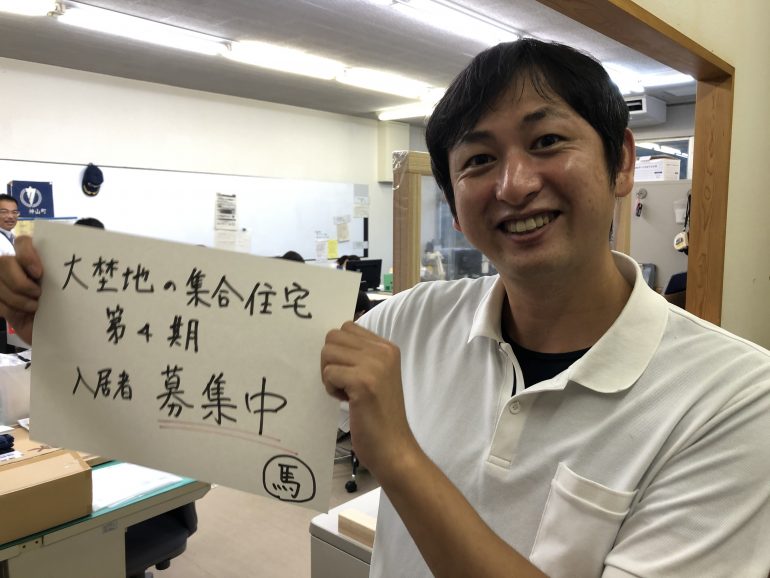 神山町
大埜地の集合住宅
第4期
入居者 募集中
馬